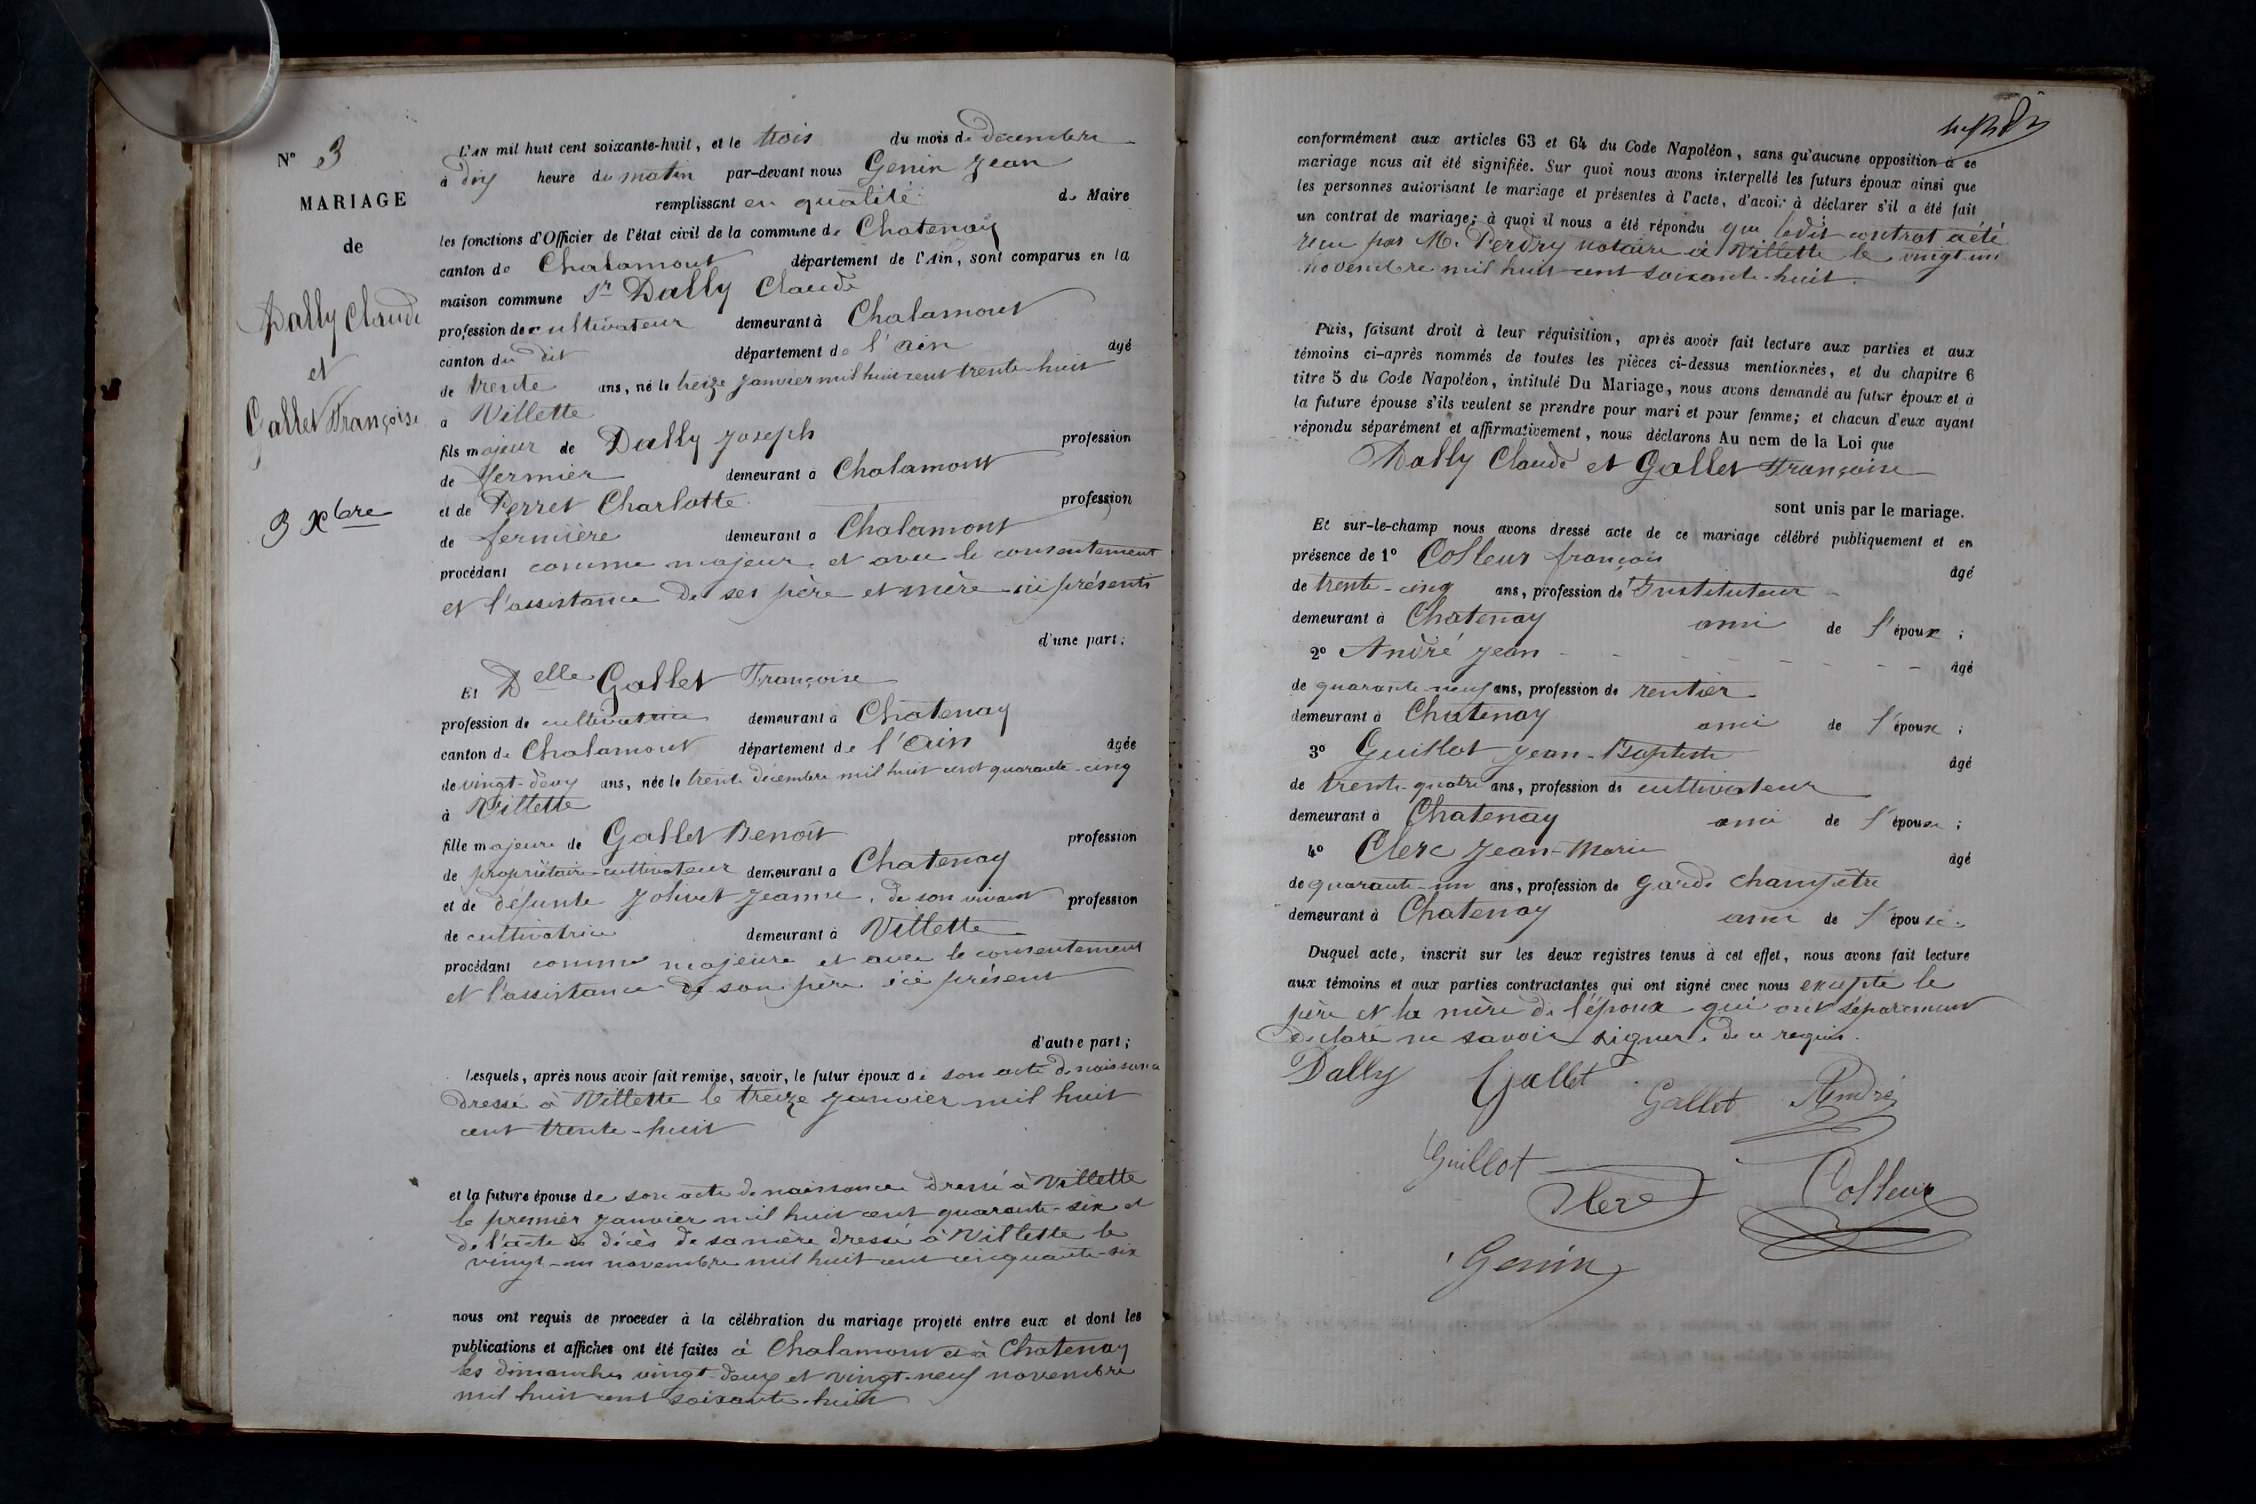 N° 3
MARIAGE
de
Dally Claude
et
Gallet Françoise
3 Xbre
L'AN mil huit cent soixante-huit, et le trois du mois de décembre
à dix heure du matin par-devant nous Genin Jean
remplissant en qualité de Maire
les fonctions d'Officier de l'état civil de la commune de Chatenay
canton de Chalamont département de l'Ain, sont comparus en la
maison commune Sr Dally Claude
profession de cultivateur demeurant à Chalamont
canton du dit département de l'Ain âgé
de trente ans, né le treize Janvier mil huit cent trente-huit
à Villette
fils majeur de Dally Joseph profession
de fermier demeurant à Chalamont
et de Perret Charlotte profession
de fermière demeurant à Chalamont
procédant comme majeur, et avec le consentement
et l'assistance de ses père et mère ici présents
d'une part;
Et Delle Gallet Françoise
profession de cultivatrice demeurant à Chatenay
canton de Chalamont département de l'Ain âgée
de vingt-deux ans, née le trente décembre mil huit cent quarante-cinq
à Villette
fille majeure de Gallet Benoît profession
de propriétaire-cultivateur demeurant à Chatenay
et de défunte Jolivet Jeanne, de son vivant profession
de cultivatrice demeurant à Villette
procédant comme majeure et avec le consentement
et l'assistance de son père ici présent
d'autre part;
Lesquels, après nous avoir fait remise, savoir, le futur époux de son acte de naissance
dressé à Villette le treize Janvier mil huit
cent trente-huit
et la future épouse de son acte de naissance dressé à Villette
le premier Janvier mil huit cent quarante-six et
de l'acte de décès de sa mère dressé à Villette le
vingt-un novembre mil huit cent cinquante-six
nous ont requis de procéder à la célébration du mariage projeté entre eux et dont les
publications et affiches ont été faites à Chalamont et à Chatenay
les dimanches vingt-deux et vingt-neuf novembre
mil huit cent soixante-huit
conformément aux articles 63 et 64 du Code Napoléon, sans qu'aucune opposition à ce
mariage nous ait été signifiée. Sur quoi nous avons interpellé les futurs époux ainsi que
les personnes autorisant le mariage et présentes à l'acte, d'avoir à déclarer s'il a été fait
un contrat de mariage; à quoi il nous a été répondu que ledit contrat a été
reçu par M. Perdry notaire à Villette le vingt-un
novembre mil huit cent soixante-huit.
Puis, faisant droit à leur réquisition, après avoir fait lecture aux parties et aux
témoins ci-après nommés de toutes les pièces ci-dessus mentionnées, et du chapitre 6
titre 5 du Code Napoléon, intitulé Du Mariage, nous avons demandé au futur époux et à
la future épouse s'ils veulent se prendre pour mari et pour femme; et chacun d'eux ayant
répondu séparément et affirmativement, nous déclarons Au nom de la Loi que
Dally Claude et Gallet Françoise
sont unis par le mariage.
Et sur-le-champ nous avons dressé acte de ce mariage célébré publiquement et en
présence de 1° Colleur françois âgé
de trente-cinq ans, profession de Instituteur
demeurant à Chatenay ami de l'époux;
2° André Jean âgé
de quarante-neuf ans, profession de rentier
demeurant à Chatenay ami de l'époux;
3° Guillot Jean-Baptiste âgé
de trente-quatre ans, profession de cultivateur
demeurant à Chatenay ami de l'épouse;
4° Clerc Jean-Marie âgé
de quarante-un ans, profession de garde champêtre
demeurant à Chatenay ami de l'épouse.
Duquel acte, inscrit sur les deux registres tenus à cet effet, nous avons fait lecture
aux témoins et aux parties contractantes qui ont signé avec nous excepté le
père et la mère de l'époux qui ont séparément
déclaré ne savoir signer, de ce requis.
Dally Gallet Gallet André
Guillot Clerc Colleur
Genin